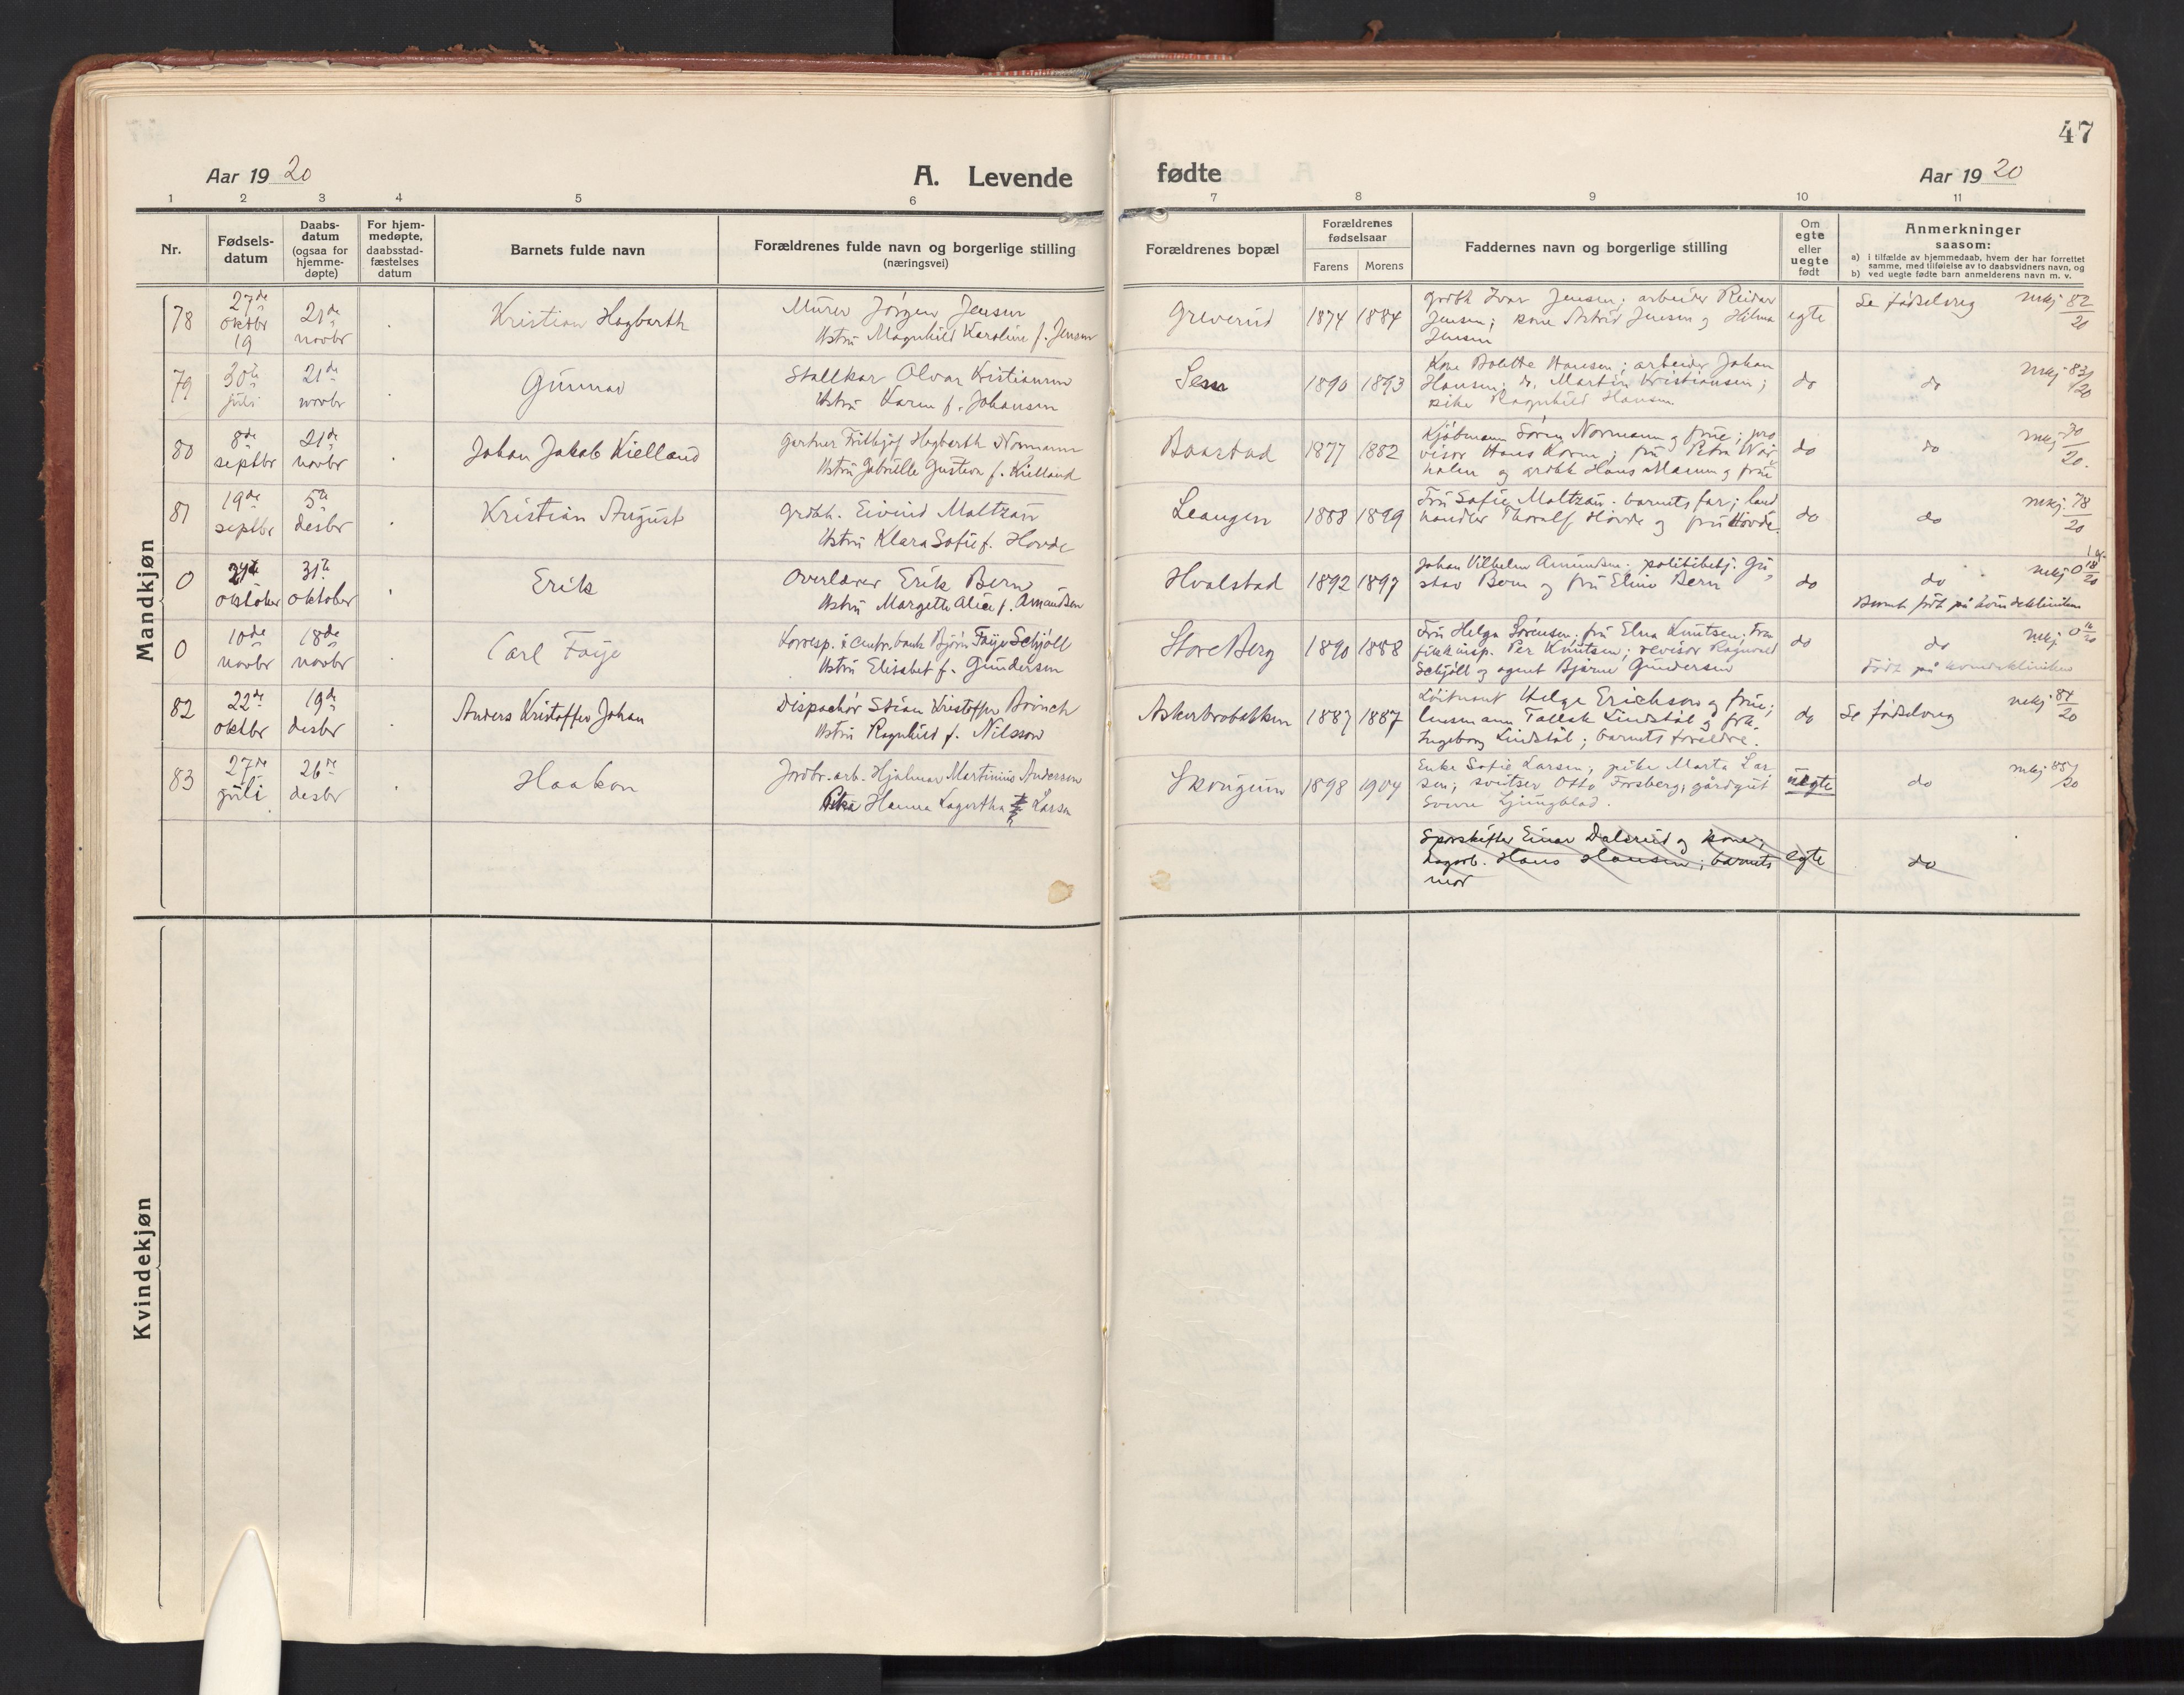 47
Aar 1920
A. Levende fødte
Aar 1920
1 2 3 4 5 6 7 8 9 10 11
Nr.
Fødsels-
datum
Daabs-
datum
(ogsaa for
hjemme-
døpte)
For hjem-
medøpte,
daabsstad-
fæstelses
datum
Barnets fulde navn
Forældrenes fulde navn og borgerlige stilling
(næringsvei)
Forældrenes bopæl
Forældrenes
fødselsaar
Farens Morens
Faddernes navn og borgerlige stilling
Om
egte
eller
uegte
født
Anmerkninger
saasom:
a) i tilfælde av hjemmedaab, hvem der har forrettet
samme, med tilføielse av to daabsvidners navn, og
b) ved uegte fødte barn anmelderens navn m. v.
Mandkjøn
78
27de
oktbr
19
21de
novbr
Kristian Hagbarth
Murer Jørgen Jensen
Hstru Magnhild Karoline f. Jensen
Greverud
1874 1884
grdbk Ivar Jensen; arbeider Reidar
Jensen; kone Astrid Jensen og Hilma
Jensen
egte
Se fødselsreg mkj 82/20
79
30te
juli
21de
novbr
Gunnar
Stallkar Olvar Kristiansen
Hstru Karen f. Johansen
Sem
1890 1893
Kone Bolette Hansen; arbeider Johan
Hansen; do. Martin Kristiansen;
pike Ragnhild Hansen
do
do mkj 83/20
80
8de
septbr
21de
novbr
Johan Jakob Kielland
Gartner Frithjof Hagbarth Normann
Hstru Gabrielle Gustava f. Kielland
Baastad
1877 1882
Kjøbmann Søren Normann og frue; pro
visor Hans Koren; fru Petra War
holm og grdbk Hans Mamen og frue
do
do mkj 70/20.
81
19de
septbr
5te
desbr
Kristian August
Grdbk. Eivind Maltzau
Hstru Klara Sofie f. Hovde
Leangen
1888 1899
Fru Sofie Maltzau. barnets far; land
handler Thoralf Hovde og fru Hovde
do
do mkj. 78/20
0
oktober
31te
oktober
Erik
Overlærer Erik Bern
Hstru Margette Alice f. Amundsen
Hvalstad
1892 1897
Johan Vilhelm Amundsen. politibetj. Gu
stav Bern og fru Eline Bern
do
do mkj 0 18/20
Barnet født på kvindeklinikken
0
10de
novbr
18de
novbr
Carl Faye
Korresp. i Centr.bank Bjørn Faye Schjøll
Hstru Elisabet f. Gundersen
Store Berg
1890 1888
Fru Helga Sørensen. fru Elna Knutsen; tra
fikkinsp. Per Knutsen; revisor Ragnvald
Schjøll og agent Bjarne Gundersen
do
do mkj 0 16/20
Født på kvindeklinikken
82
22de
oktbr
19de
desbr
Anders Kristoffer Johan
Dispachør Stian Kristoffer Brinch
Hstru Ragnhild f. Nilsson
Askerbrobakken
1887 1887
Løitnant Helge Erichsen og frue;
lensmann Tallak Lindstøl og frk.
Ingeborg Lindstøl; barnets foreldre.
do
Se fødselsreg mkj 84/20
83
27de
juli
26de
desbr
Haakon
Jordbr.arb. Hjalmar Martinius Andersen
Pike Hanna Lagertha Larsen
Skougum
1898 1904
Enke Sofie Larsen; pike Marta Lar
sen; sveitser Otto Forsberg; gårdgut
Sverre Ljungblad.
uegte
do mkj 85/20
Sporskifter Einar Dalerud og kone;
dagarb. Hans Hansen; barnets
mor
egte
do
Kvindekjøn